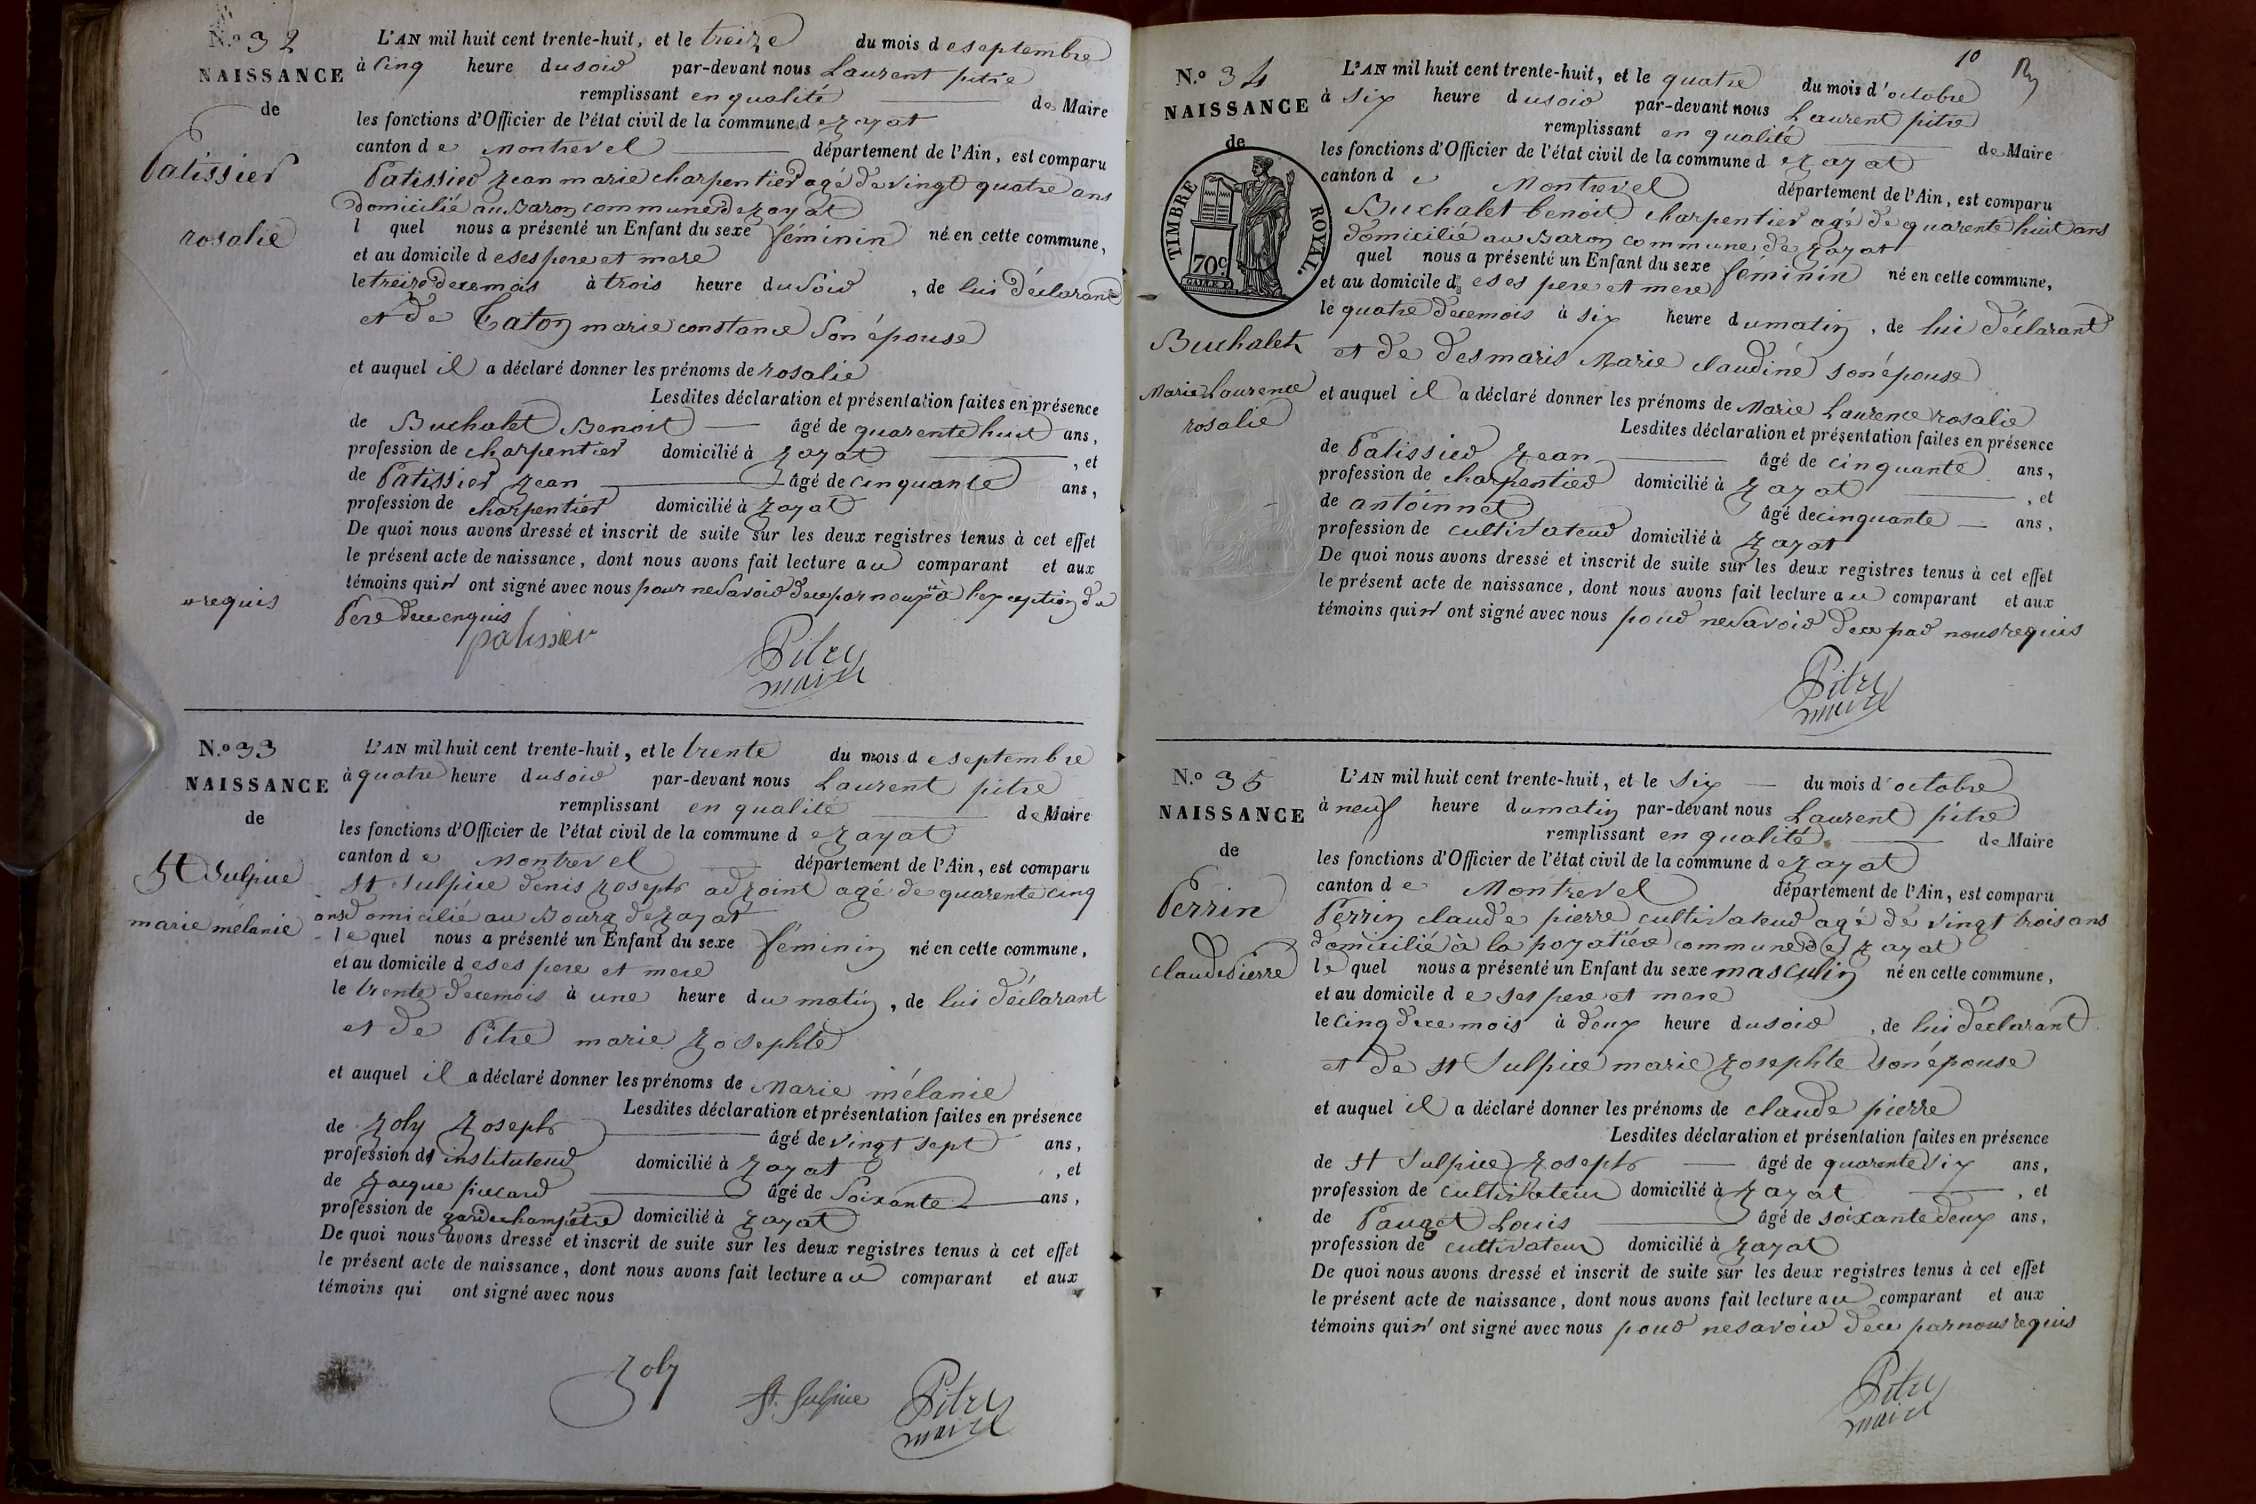 N.o 32
NAISSANCE
de
Patissier
rosalie
L'AN mil huit cent trente-huit, et le treize du mois de septembre
à cinq heure du soir par-devant nous Laurent pitre
remplissant en qualité de Maire
les fonctions d'Officier de l'état civil de la commune de Jayat
canton de Montrevel département de l'Ain, est comparu
Patissier Jean marie charpentier agé de vingt quatre ans
domicilié au Baron commune de Jayat
l quel nous a présenté un Enfant du sexe féminin né en cette commune,
et au domicile de ses pere et mere
le treize de ce mois à trois heure du soir, de lui déclarant
et de Caton marie constance son épouse
et auquel il a déclaré donner les prénoms de rosalie
Lesdites déclaration et présentation faites en présence
de Buchalet Benoit âgé de quarente huit ans,
profession de charpentier domicilié à Jayat, et
de Patissier Jean âgé de cinquante ans,
profession de charpentier domicilié à Jayat
De quoi nous avons dressé et inscrit de suite sur les deux registres tenus à cet effet
le présent acte de naissance, dont nous avons fait lecture au comparant et aux
témoins qui n' ont signé avec nous pour ne savoir de ce par nous à l'exception du
requis
Pere de ce enquis
patissier
Pitre
maire
N.o 33
NAISSANCE
de
St Sulpice
marie mélanie
L'AN mil huit cent trente-huit, et le trente du mois de septembre
à quatre heure du soir par-devant nous Laurent pitre
remplissant en qualité de Maire
les fonctions d'Officier de l'état civil de la commune de Jayat
canton de Montrevel département de l'Ain, est comparu
St Sulpice denis Joseph adjoint agé de quarente cinq
ans domicilié au Bourg de Jayat
le quel nous a présenté un Enfant du sexe féminin né en cette commune,
et au domicile de ses pere et mere
le trente de ce mois à une heure du matin, de lui déclarant
et de Pitre marie Josephte
et auquel il a déclaré donner les prénoms de Marie mélanie
Lesdites déclaration et présentation faites en présence
de Joly Joseph âgé de vingt sept ans,
profession d' instituteur domicilié à Jayat, et
de Jacque piccard âgé de Soixante ans,
profession de garde champétre domicilié à Jayat
De quoi nous avons dressé et inscrit de suite sur les deux registres tenus à cet effet
le présent acte de naissance, dont nous avons fait lecture au comparant et aux
témoins qui ont signé avec nous
Joly
St. Sulpice
Pitre
maire
10
N.o 34
NAISSANCE
de
TIMBRE ROYAL.
70c
Buchalet
Marie Laurence
rosalie
L'AN mil huit cent trente-huit, et le quatre du mois d'octobre
à six heure du soir par-devant nous Laurent pitre
remplissant en qualité de Maire
les fonctions d'Officier de l'état civil de la commune de Jayat
canton de Montrevel département de l'Ain, est comparu
Buchalet benoit charpentier agé de quarente huit ans
domicilié au Baron commune de Jayat
quel nous a présenté un Enfant du sexe féminin né en cette commune,
et au domicile de ses pere et mere
le quatre de ce mois à six heure du matin, de lui déclarant
et de desmaris Marie claudine son épouse
et auquel il a déclaré donner les prénoms de Marie Laurence rosalie
Lesdites déclaration et présentation faites en présence
de Patissier Jean âgé de cinquante ans,
profession de charpentier domicilié à Jayat, et
de antoinnet âgé de cinquante ans,
profession de cultivateur domicilié à Jayat
De quoi nous avons dressé et inscrit de suite sur les deux registres tenus à cet effet
le présent acte de naissance, dont nous avons fait lecture au comparant et aux
témoins qui n' ont signé avec nous pour ne savoir de ce par nous requis
Pitre
maire
N.o 35
NAISSANCE
de
Perrin
claude Pierre
L'AN mil huit cent trente-huit, et le six du mois d'octobre
à neuf heure du matin par-devant nous Laurent pitre
remplissant en qualité de Maire
les fonctions d'Officier de l'état civil de la commune de Jayat
canton de Montrevel département de l'Ain, est comparu
Perrin claude pierre cultivateur agé de vingt trois ans
domicilié à la poyatiere commune de Jayat
le quel nous a présenté un Enfant du sexe masculin né en cette commune,
et au domicile de ses pere et mere
le cinq de ce mois à deux heure du soir, de lui déclarant
et de St Sulpice marie Josephte son épouse
et auquel il a déclaré donner les prénoms de claude pierre
Lesdites déclaration et présentation faites en présence
de St Sulpice Joseph âgé de quarente six ans,
profession de cultivateur domicilié à Jayat, et
de Pauget Louis âgé de soixante deux ans,
profession de cultivateur domicilié à Jayat
De quoi nous avons dressé et inscrit de suite sur les deux registres tenus à cet effet
le présent acte de naissance, dont nous avons fait lecture au comparant et aux
témoins qui n' ont signé avec nous pour ne savoir de ce par nous requis
Pitre
maire